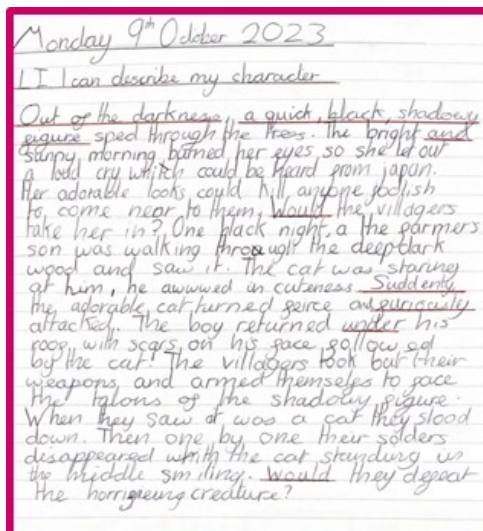 Monday 9th October 2023
LI I can describe my character
Out of the darkness, a quick, black, shadowy
figure sped through the trees. The bright and
sunny morning burned her eyes so she let out
a loud cry whitch could be heard from japan.
Her adorable looks could kill anyone foolish
to come near to them. Would the villagers
take her in? One black night, a the farmers
son was walking through the deep dark
wood and saw it. The cat was staring
at him, he awwwed in cuteness. Suddenly
the adorable cat turned feirce and furiously
attacked. The boy returned under his
roof with scars on his face followed
by the cat! The villagers took out their
weapons and armed themselfs to face
the talons of the shadowy figure.
When they saw it was a cat they stood
down. Then one by one their solders
disappeared whith the cat standing in
the middle smiling. Would they defeat
the horrifieing creature?